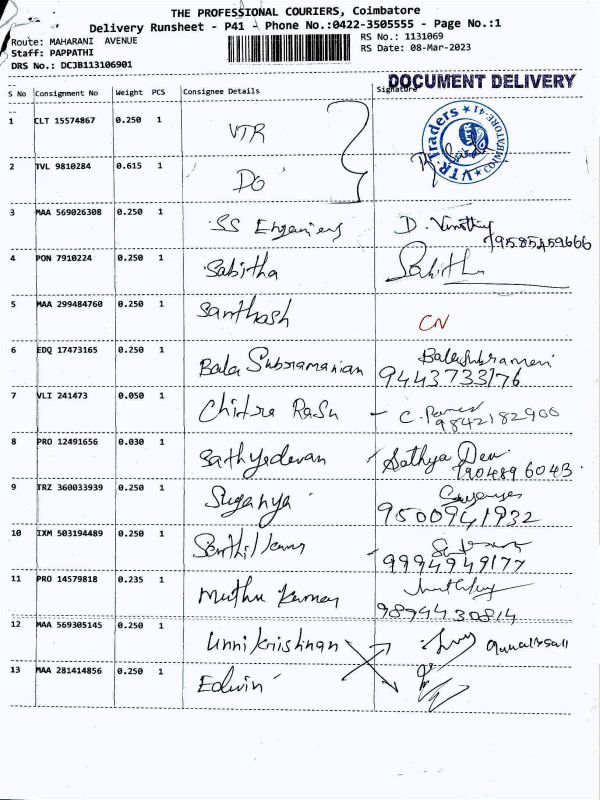 THE PROFESSIONAL COURIERS, Coimbatore
Delivery Runsheet - P41 - Phone No.:0422-3505555 - Page No.:1
Route: MAHARANI AVENUE
RS No.: 1131069
Staff: PAPPATHI
RS Date: 08-Mar-2023
DRS No.: DCJB113106901
DOCUMENT DELIVERY
S No Consignment No Weight PCS Consignee Details Signature
1 CLT 15574867 0.250 1 VTR
VTR Traders ★ COIMBATORE-41 ★
2 TVL 9810284 0.615 1 DO
3 MAA 569026308 0.250 1 SS Enganiers D. Vinothiny
9585459666
4 PON 7910224 0.250 1 Sabitha Sabith
5 MAA 299484760 0.250 1 Santhosh CN
6 EDQ 17473165 0.250 1 Bala Subramanian Balasubramani
9443733176
7 VLI 241473 0.050 1 Chitra Rasu - C.
9842182900
8 PRO 12491656 0.030 1 Sathyadevan Sathya Devi
904896043
9 TRZ 360033939 0.250 1 Suganya
9500941932
10 IXM 503194489 0.250 1 Senthil Kumar
9994949177
11 PRO 14579818 0.235 1 Muthu Kumar
9894430814
12 MAA 569305145 0.250 1 Unni Krishnan
13 MAA 281414856 0.250 1 Edwin